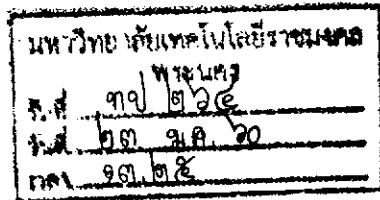 มหาวิทยาลัยเทคโนโลยีราชมงคล
พระนคร
ที่ ๒๖๔
วันที่ ๒๓ ม.ค. ๖๐
เวลา ๑๓.๒๕